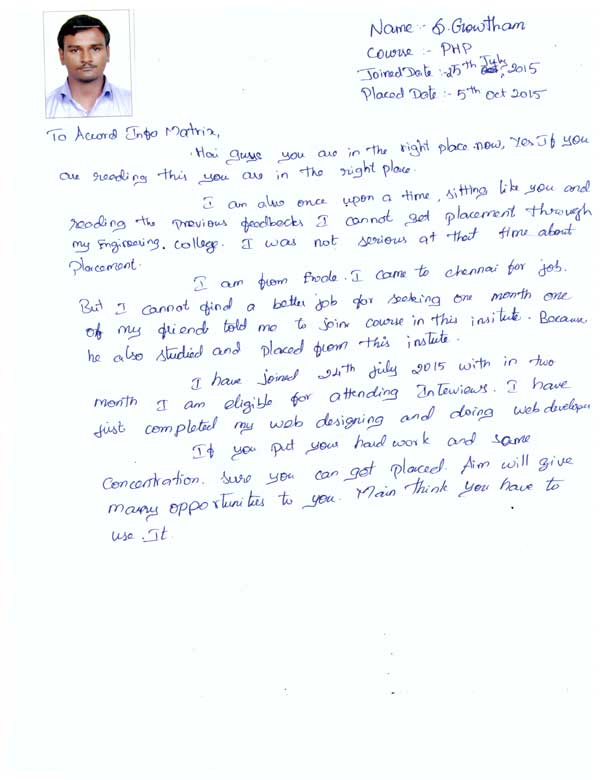 Name :- S. Growtham
Course :- PHP
Joined Date :- 25th July, 2015
Placed Date :- 5th Oct 2015
To Accord Info Matrix,
Hai guys you are in the right place now, Yes If you
are reading this you are in the right place.
I am also once upon a time, sitting like you and
reading the previous feedbacks I cannot get placement through
my Engineering. college. I was not serious at that time about
Placement.
I am from Erode. I came to chennai for job.
But I cannot find a better job for seeking one month one
of my friend told me to join course in this insitute. Because
he also studied and placed from this instute.
I have joined 24th july 2015 with in two
month I am eligible for attending Interviews. I have
just completed my web designing and doing web develope
If you put your hard work and same
Concentration. Sure you can get placed. Aim will give
many opportunities to you. Main think you have to
use. It.